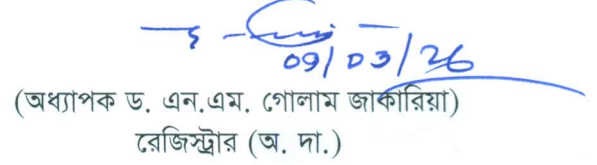 09/03/26
(অধ্যাপক ড. এন.এম. গোলাম জাকারিয়া)
রেজিস্ট্রার (অ. দা.)